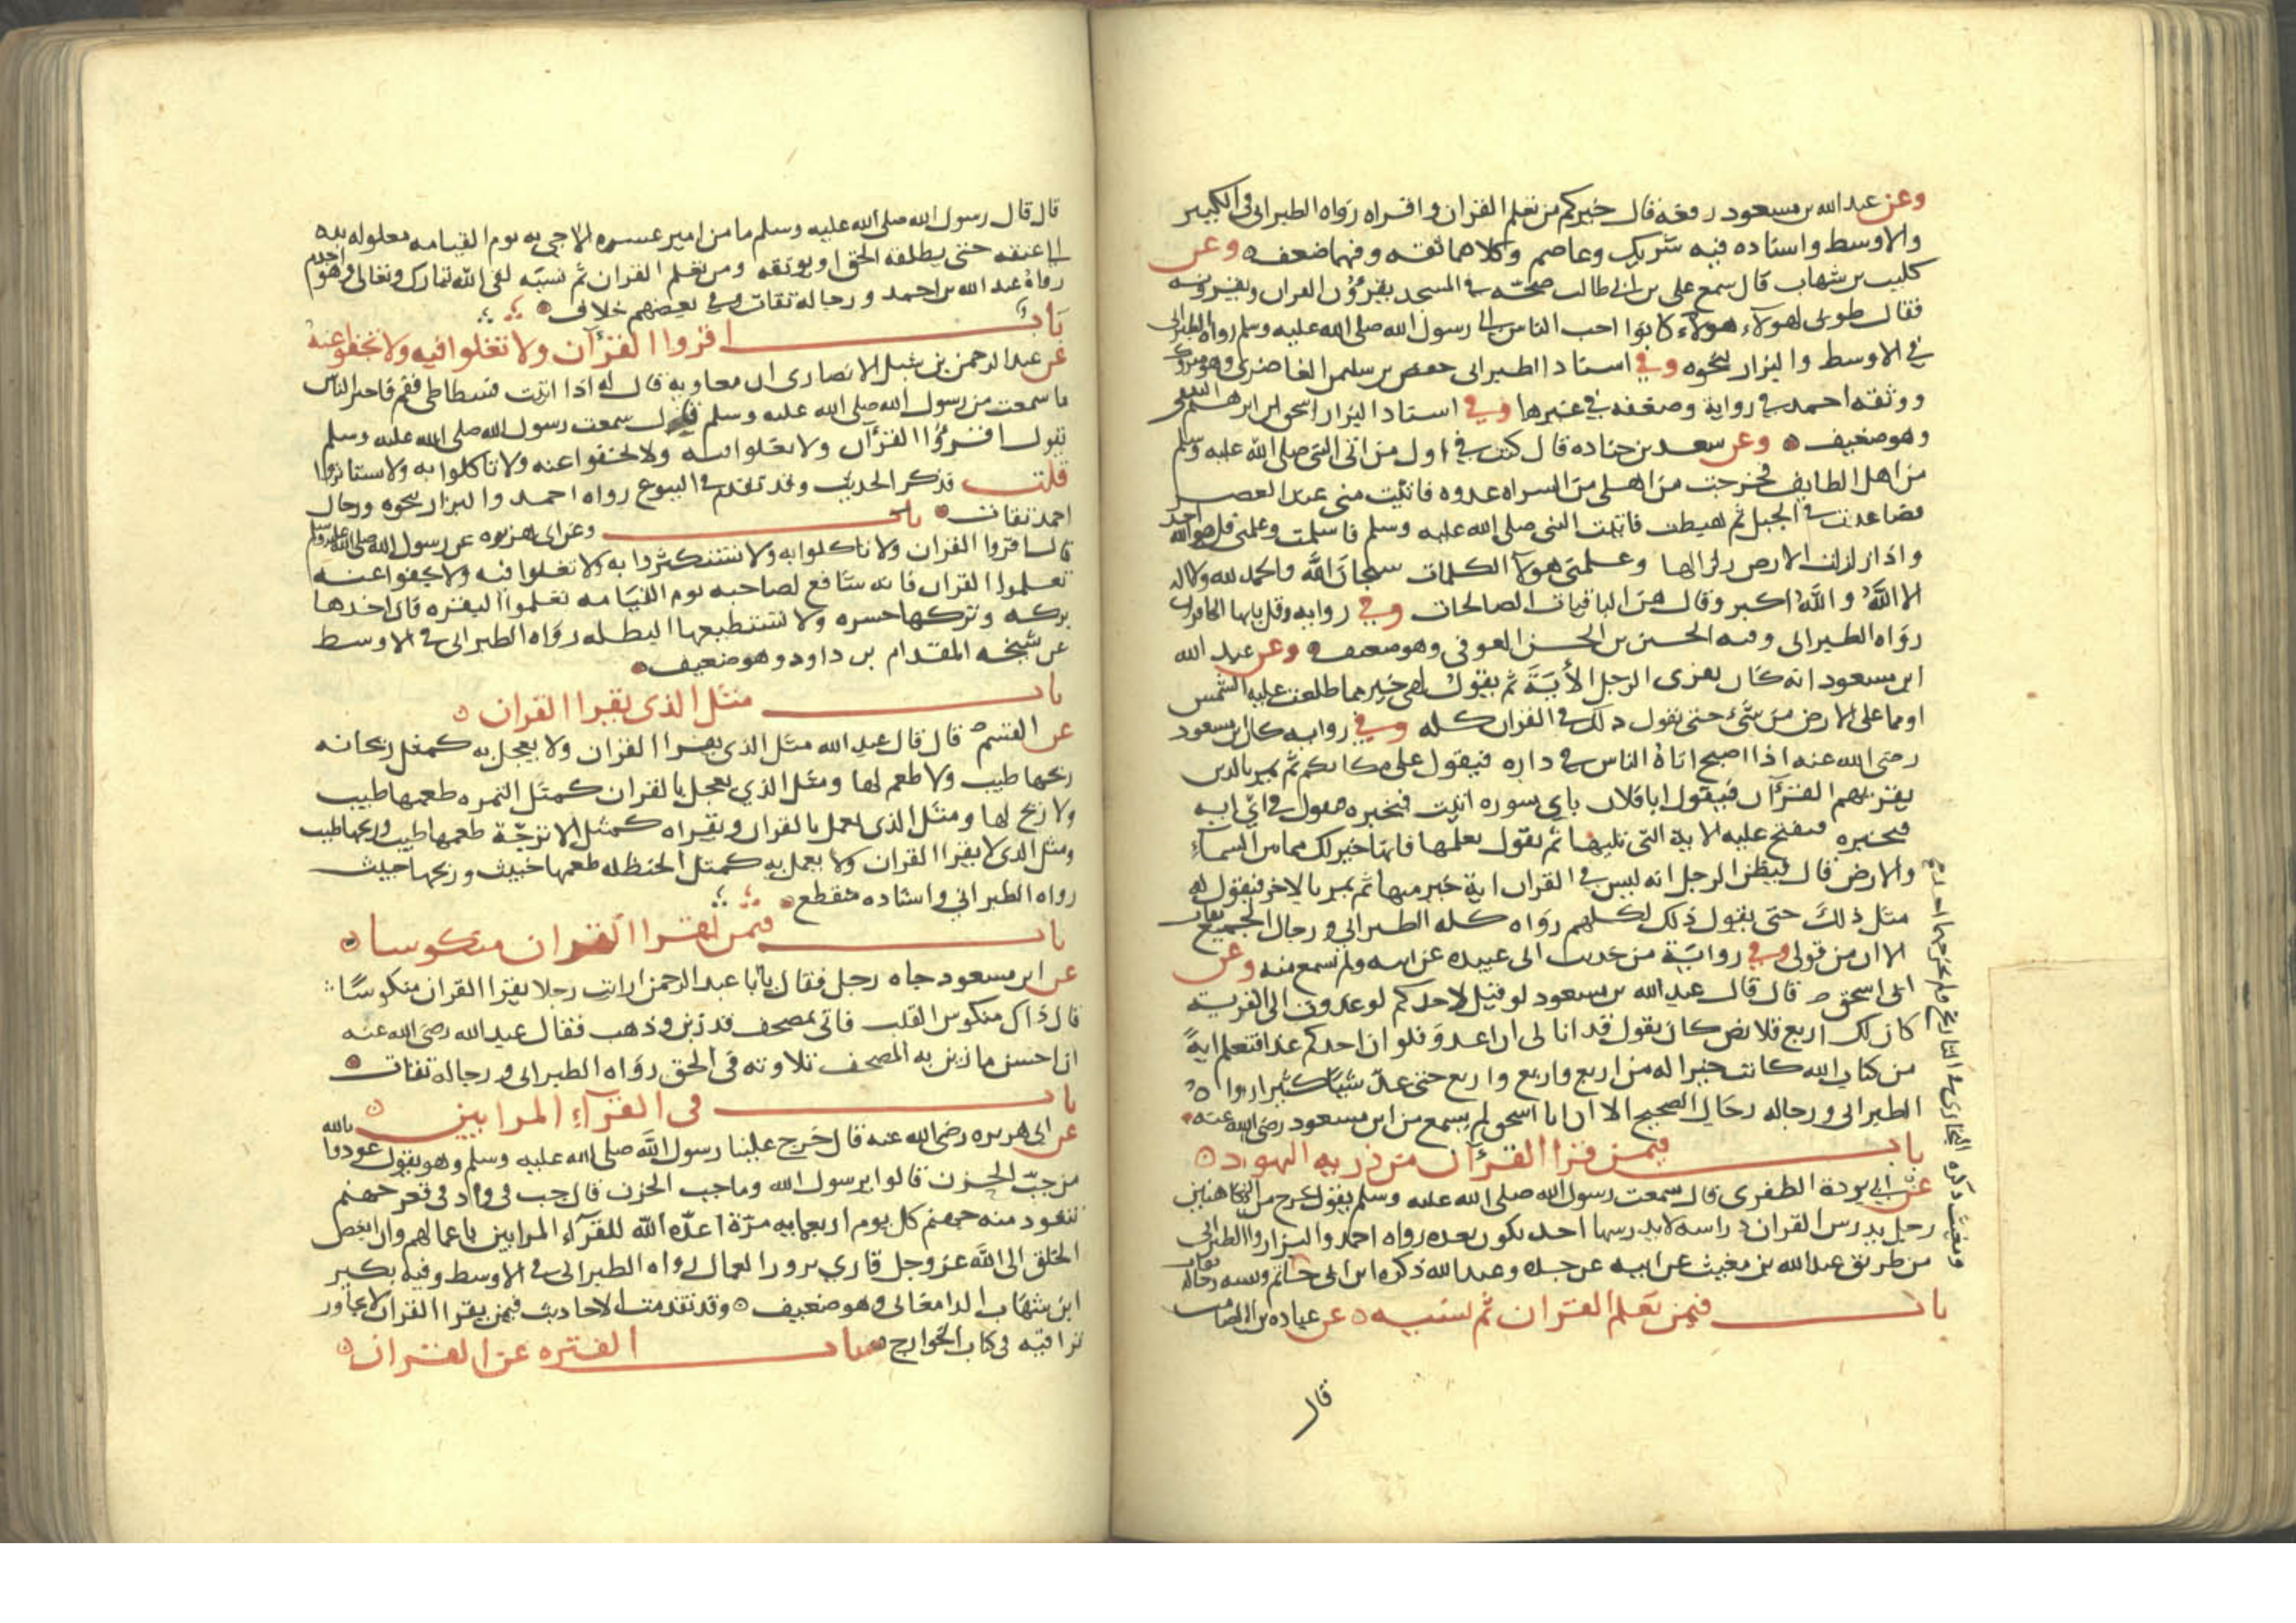 وعن عبد الله بن مسعود رفعه قال خيركم من تعلم القران واقراه رواه الطبراني في الكبير
والاوسط واسناده فيه شريك وعاصم وكلاهما ثقه وفيهما ضعف وعن
كليب بن شهاب قال سمع علي بن ابي طالب ضجة في المسجد يقرؤن القران ويقرونه
فقال طوبى لهولاء هولاء كانوا احب الناس الى رسول الله صلى الله عليه وسلم رواه الطبراني
في الاوسط والبزار بنحوه وفي اسناد الطبراني حفص بن سليمن الغاضري وهو متروك
ووثقه احمد في رواية وضعفه في غيرها وفي اسناد البزار اسحق بن ابرهيم الثقفي
وهو ضعيف وعن سعد بن جناده قال كنت في اول من اتى النبي صلى الله عليه وسلم
من اهل الطايف فخرجت من اهلي من السراه غدوه فاتيت منى عند العصر
فصاعدت في الجبل ثم هبطت فاتيت النبي صلى الله عليه وسلم فاسلمت وعلمني قل هو الله احد
واذا زلزلت الارض زلزالها وعلمني هولا الكلمات سبحان الله والحمد لله ولا اله
الا الله والله اكبر وقال هن الباقيات الصالحات وفي روايه وقل يايها الكافرون
رواه الطبراني وفيه الحسين بن الحسن العوفي وهو ضعيف وعن عبد الله
ابن مسعود انه كان يقرى الرجل الأية ثم يقول لهى خير مما طلعت عليه الشمس
او مما على الارض من شيء حتى يقول ذلك في القران كله وفي روايه كان ابن مسعود
رضي الله عنه اذا اصبح اتاه الناس في داره فيقول على مكانكم ثم يمر بالذين
يقريهم القرآن فيقول ابا فلان باي سوره اتيت فيخبره فيقول في اي ايه
فيخبره فيفتح عليه الاية التي تليها ثم يقول تعلمها فانها خير لك مما من السماء
والارض قال فيظن الرجل انه ليس في القران اية خير منها ثم يمر بالاخر فيقول له
مثل ذلك حتى يقول ذلك لكلهم رواه كله الطبراني ورجال الجميع ثقات
الا ان من قولي وفي رواية من حديث ابي عبيده عن ابيه ولم يسمع منه وعن
ابي اسحق قال قال عبد الله بن مسعود لو قيل لاحدكم لو غدوت الى القرية
كان لك اربع قلائص كان يقول قد انا لي ان اغدو فلو ان احدكم غدا فتعلم اية
من كتاب الله كانت خيرا له من اربع واربع واربع حتى عد شيئا كثيرا رواه
الطبراني ورجاله رجال الصحيح الا ان ابا اسحق لم يسمع من ابن مسعود رضي الله عنه
باب فيمن قرا القرآن من ذريه اليهود
عن ابي بردة الظفري قال سمعت رسول الله صلى الله عليه وسلم يقول يخرج من الكاهنين
رجل يدرس القران دراسه لا يدرسها احد يكون بعده رواه احمد والبزار والطبراني
من طريق عبد الله بن مغيث عن ابيه عن جده وعبد الله ذكره ابن ابي حاتم وبقيه رجاله ثقات
باب فيمن تعلم القران ثم نسيه عن عباده بن الصامت
قال
قال قال رسول الله صلى الله عليه وسلم ما من امير عشره الا جي به يوم القيامه مغلوله يده
الى عنقه حتى يطلقه الحق او يوثقه ومن تعلم القران ثم نسيه لقي الله تبارك وتعالى وهو اجذم
رواه عبد الله بن احمد ورجاله ثقات وفي بعضهم خلاف
باب اقروا القرآن ولا تغلوا فيه ولا تجفوا عنه
عن عبد الرحمن بن شبل الانصاري ان معاويه قال له اذا اتيت فسطاطي فقم فاخبر الناس
ما سمعت من رسول الله صلى الله عليه وسلم قال سمعت رسول الله صلى الله عليه وسلم
يقول اقرؤا القرآن ولا تغلوا فيه ولا تجفوا عنه ولا تاكلوا به ولا تستاثروا
قلت فذكر الحديث وقد تقدم في البيوع رواه احمد والبزار بنحوه ورجال
احمد ثقات باب وعن ابي هريره عن رسول الله صلى الله عليه وسلم
قال اقروا القران ولا تاكلوا به ولا تستكثروا به ولا تغلوا فيه ولا تجفوا عنه
تعلموا القران فانه شافع لصاحبه يوم القيامه تعلموا البقره فان اخذها
بركه وتركها حسره ولا تستطيعها البطله رواه الطبراني في الاوسط
عن شيخه المقدام بن داود وهو ضعيف
باب مثل الذي يقرا القران
عن القسم قال قال عبد الله مثل الذي يقرا القران ولا يعمل به كمثل ريحانه
ريحها طيب ولا طعم لها ومثل الذي يعمل بالقران كمثل التمره طعمها طيب
ولا ريح لها ومثل الذي يعمل بالقران ويقراه كمثل الاترجة طعمها طيب وريحها طيب
ومثل الذي لا يقرا القران ولا يعمل به كمثل الحنظله طعمها خبيث وريحها خبيث
رواه الطبراني واسناده منقطع
باب فيمن يقرا القران منكوسا
عن ابن مسعود جاه رجل فقال يابا عبد الرحمن ارايت رجلا يقرا القران منكوسا
قال ذاك منكوس القلب فاتي بمصحف قد زين وذهب فقال عبد الله رضي الله عنه
ان احسن ما زين به المصحف تلاوته في الحق رواه الطبراني ورجاله ثقات
باب في القرآء المرايين
عن ابي هريره رضي الله عنه قال خرج علينا رسول الله صلى الله عليه وسلم وهو يقول عوذوا بالله
من جب الحزن قالوا يرسول الله وما جب الحزن قال جب في واد في قعر جهنم
تتعوذ منه جهنم كل يوم اربعمايه مرة اعده الله للقرآء المرايين باعمالهم وان ابغض
الخلق الى الله عز وجل قاري يزور العمال رواه الطبراني في الاوسط وفيه بكير
ابن شهاب الدامغاني وهو ضعيف وقد تقدمت الاحاديث فيمن يقرا القران لا يجاوز
تراقيه في كتاب الخوارج باب الفتره عن القران